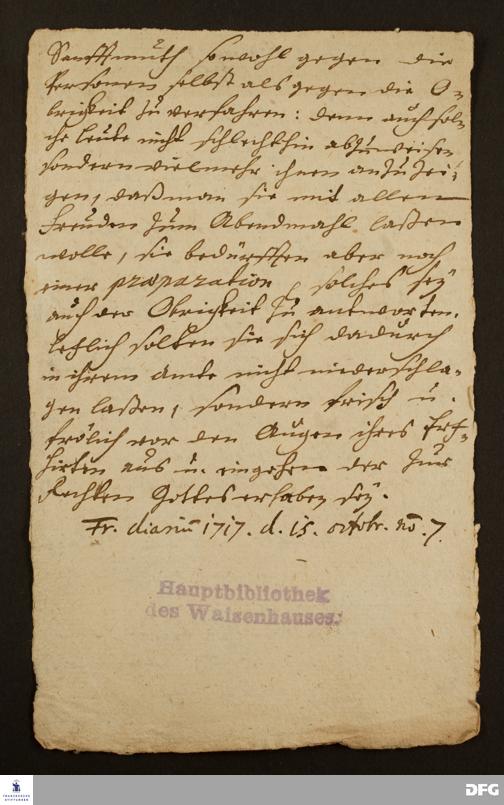 Sanfftmuth sowohl gegen die
Personen selbst als gegen die O-
brigkeit zu verfahren: denn auch sol-
che leute nicht schlechthin abzuweisen
sondern vielmehr ihnen anzuzei-
gen, daß man sie mit allen
freuden zum Abendmahl laßen
wolle, sie bedürfften aber noch
einer præparation, solches sey
auch der Obrigkeit zu antworten.
letzlich solten sie sich dadurch
in ihrem Amte nicht niederschla-
gen laßen, sondern frisch u.
frölich vor den Augen ihres Ertz-
hirten aus u. eingehen der zur
Rechten Gottes erhaben sey.
Fr. diariū 1717. d. 15. octobr. nō. 7.
Hauptbibliothek
des Waisenhauses.
FRANCKESCHE
STIFTUNGEN
DFG